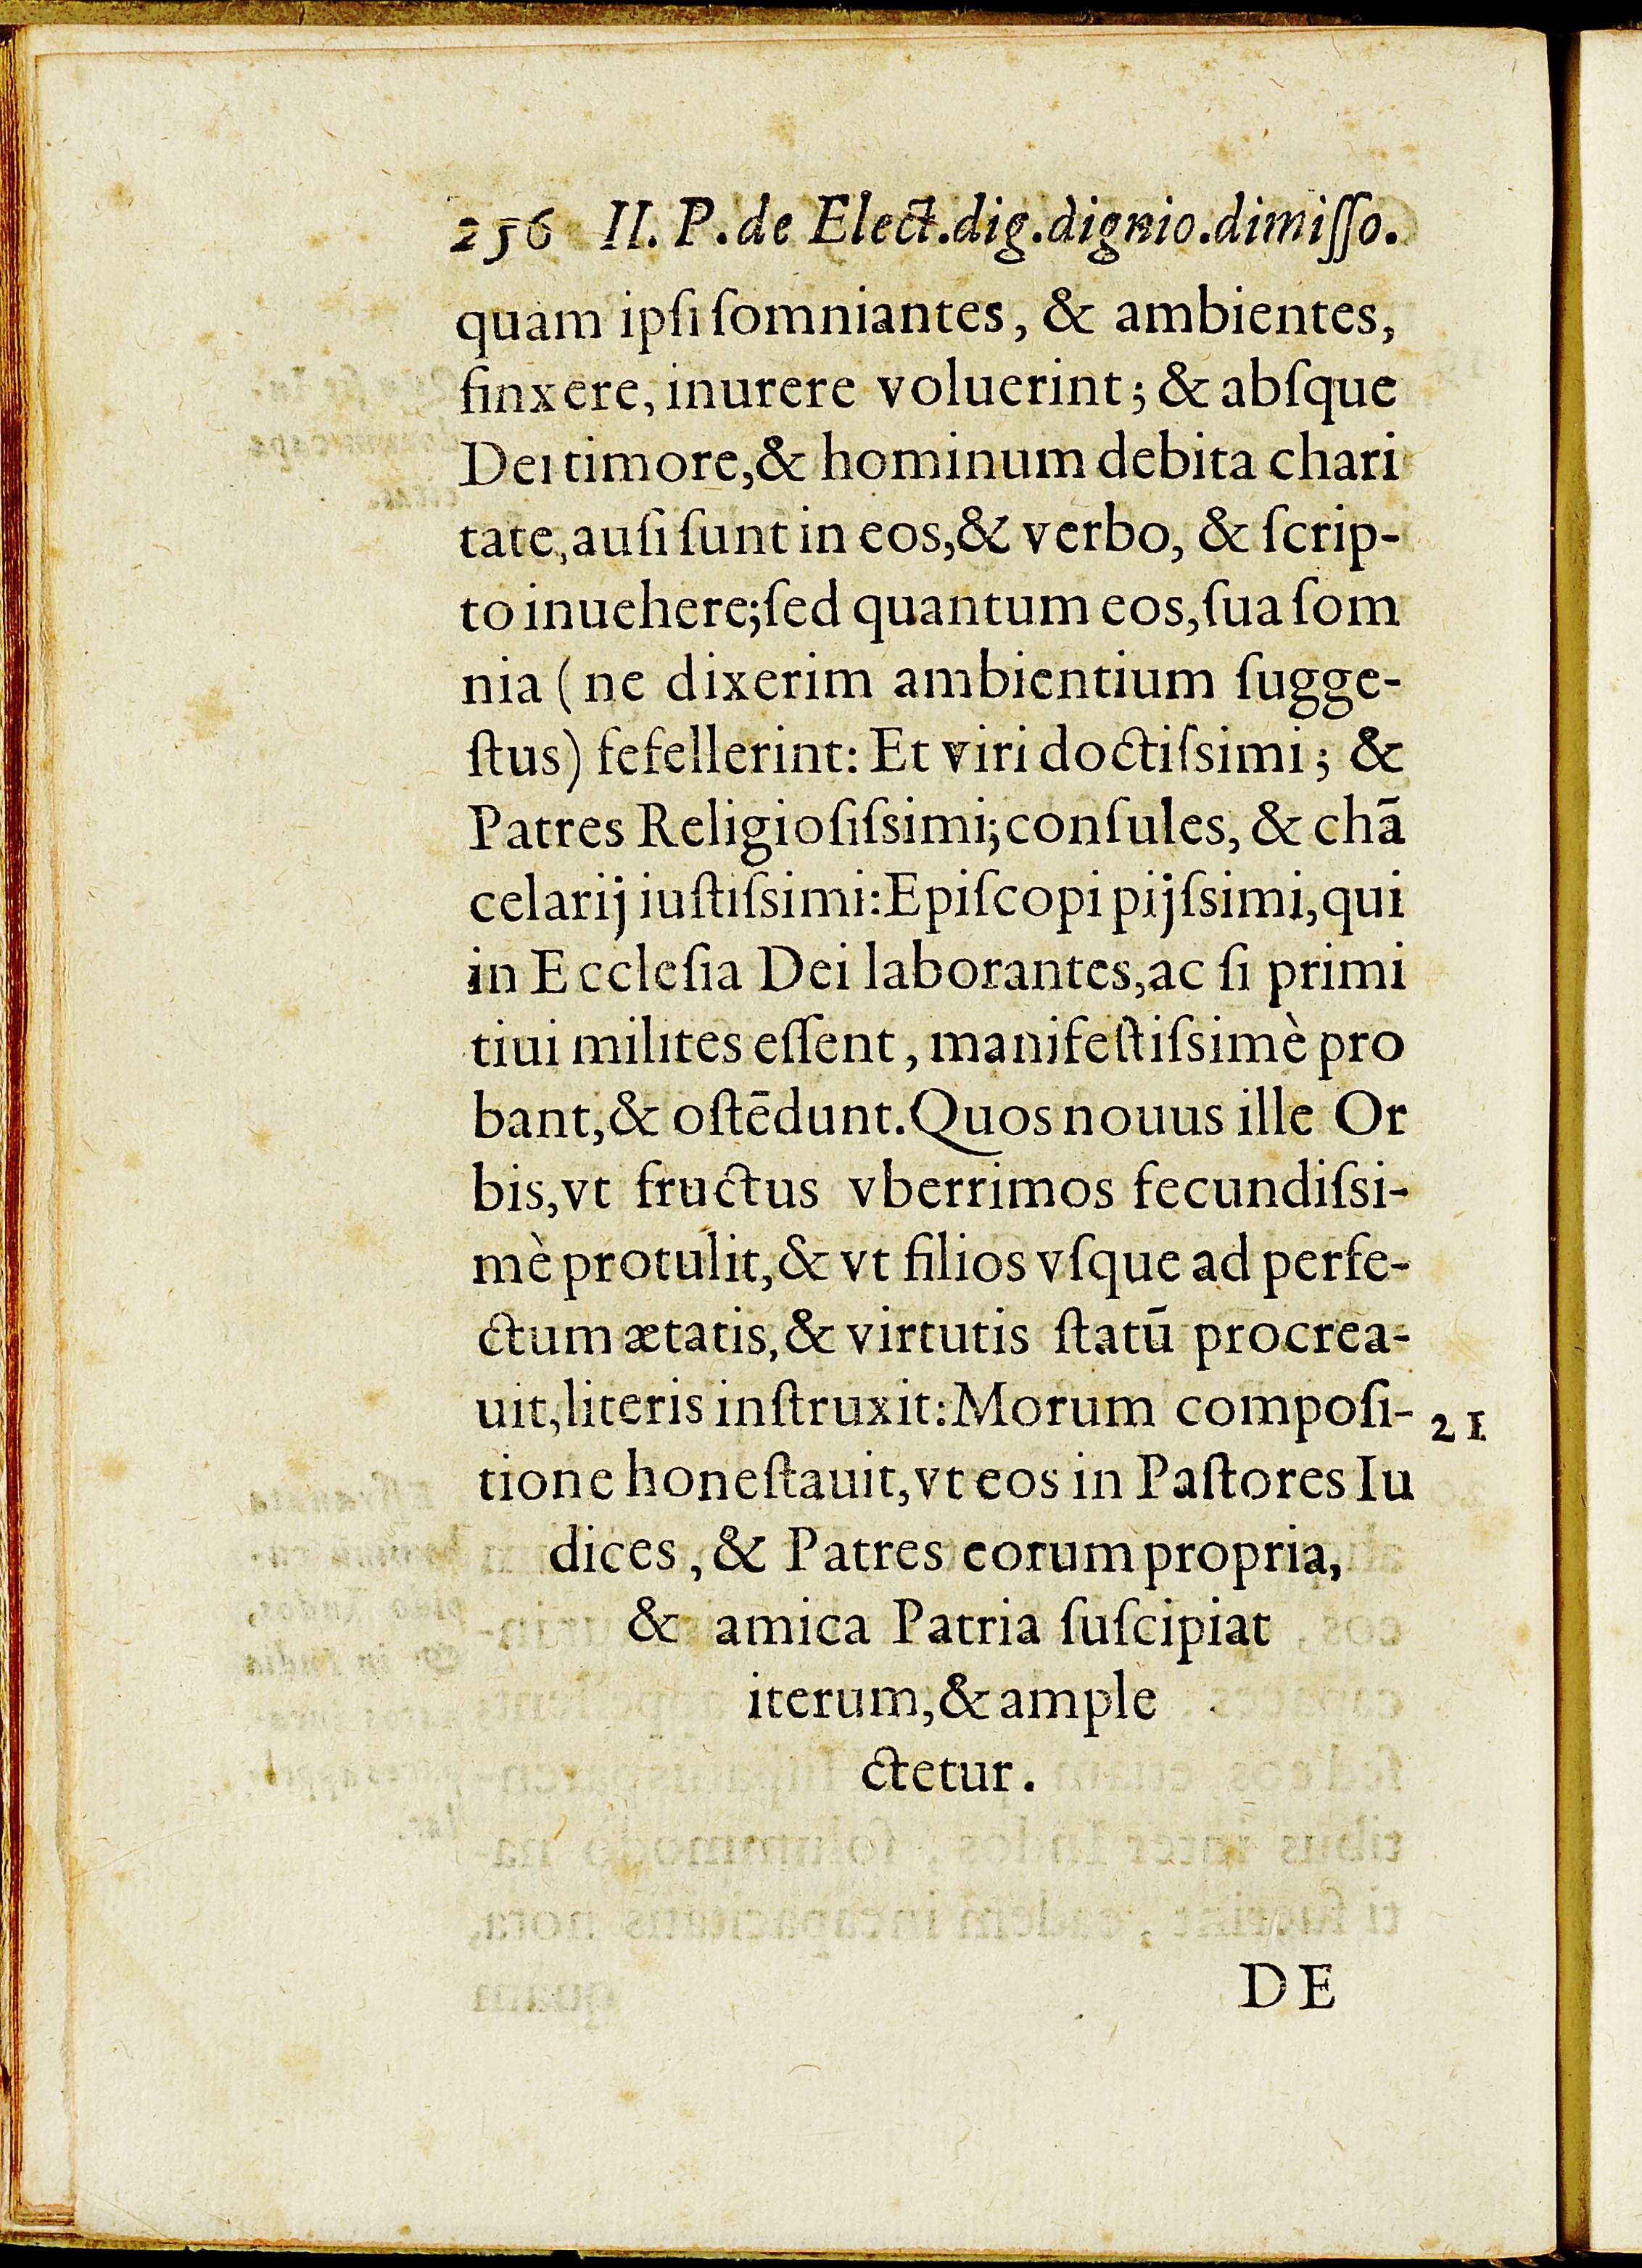 256 II. P. de Elect.dig.dignio.dimiſſo.
quam ipſi ſomniantes, & ambientes,
finxere, inurere voluerint; & abſque
Dei timore,& hominum debita chari
tate, auſi ſunt in eos,& verbo, & ſcrip-
to inuehere;ſed quantum eos,ſua ſom
nia (ne dixerim ambientium ſugge-
ſtus) fefellerint: Et viri doctiſsimi; &
Patres Religioſiſsimi;conſules, & chã
celarij iuſtiſsimi:Epiſcopi pijſsimi,qui
in Eccleſia Dei laborantes,ac ſi primi
tiui milites eſſent, manifeſtiſsimè pro
bant,& oſtēdunt.Quos nouus ille Or
bis,vt fructus vberrimos fecundiſsi-
mè protulit,& vt filios vſque ad perfe-
ctum ætatis,& virtutis ſtatū procrea-
uit,literis inſtruxit:Morum compoſi- 21
tione honeſtauit,vt eos in Paſtores Iu
dices, & Patres eorum propria,
& amica Patria ſuſcipiat
iterum,& ample
ctetur.
DE